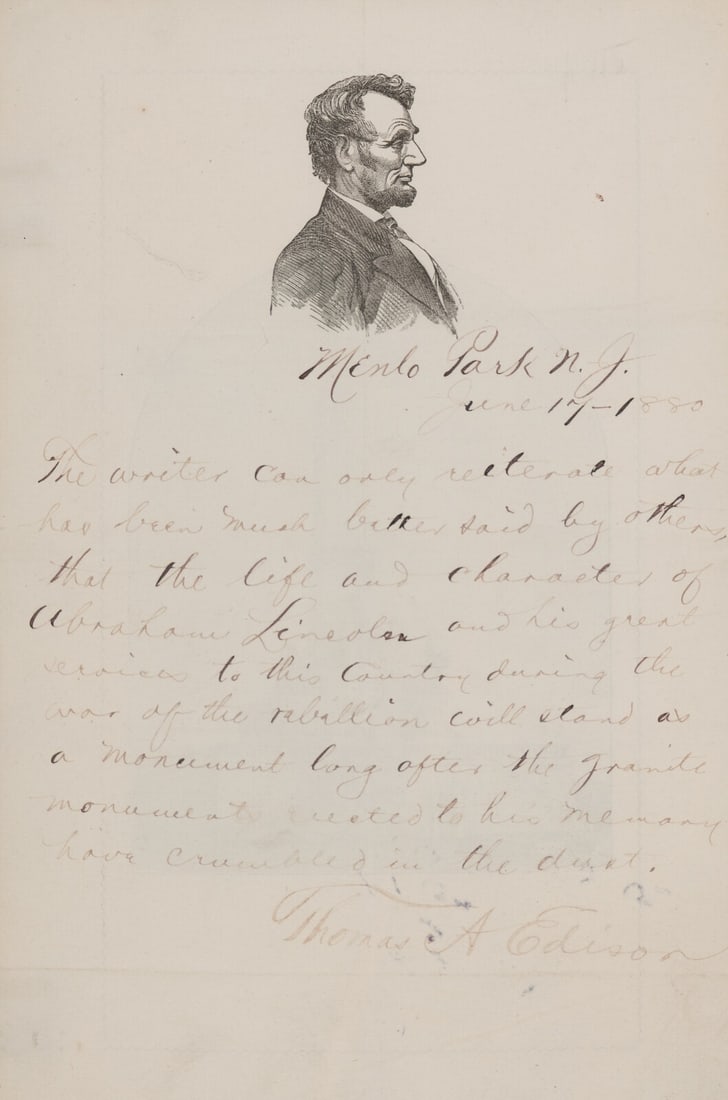 Menlo Park N. J.
June 17-1880
The writer can only reiterate what
has been much better said by others,
that the life and character of
Abraham Lincoln and his great
services to this Country during the
war of the rebellion will stand as
a monument long after the granite
monuments erected to his memory
have crumbled in the dust.
Thomas A Edison